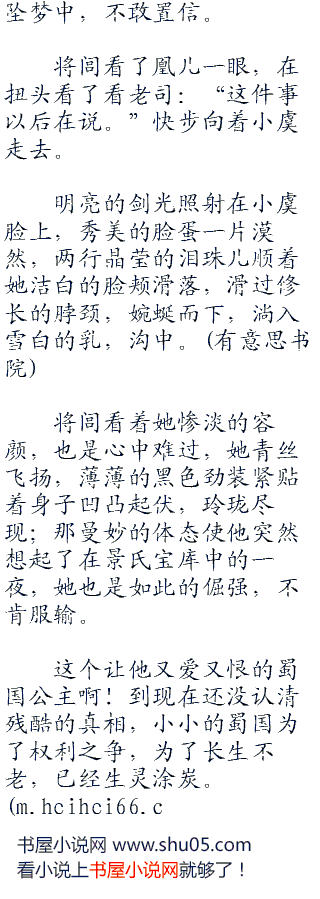 坠梦中，不敢置信。
将闾看了凰儿一眼，在
扭头看了看老司：“这件事
以后在说。”快步向着小虞
走去。
明亮的剑光照射在小虞
脸上，秀美的脸蛋一片漠
然，两行晶莹的泪珠儿顺着
她洁白的脸颊滑落，滑过修
长的脖颈，婉蜒而下，淌入
雪白的乳，沟中。(有意思书
院)
将闾看着她惨淡的容
颜，也是心中难过，她青丝
飞扬，薄薄的黑色劲装紧贴
着身子凹凸起伏，玲珑尽
现；那曼妙的体态使他突然
想起了在景氏宝库中的一
夜，她也是如此的倔强，不
肯服输。
这个让他又爱又恨的蜀
国公主啊！到现在还没认清
残酷的真相，小小的蜀国为
了权利之争，为了长生不
老，已经生灵涂炭。
(m.hcihci66.c
书屋小说网 www.shu05.com
看小说上书屋小说网就够了！